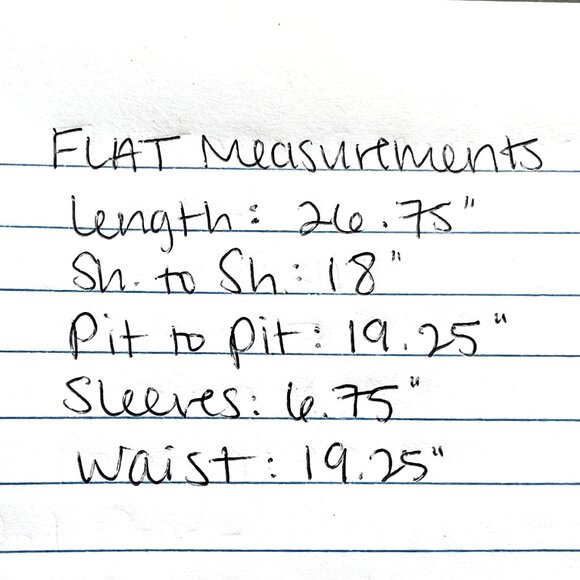 FLAT Measurements
Length: 26.75"
Sh. to Sh.: 18"
Pit to pit: 19.25"
Sleeves: 6.75"
Waist: 19.25"